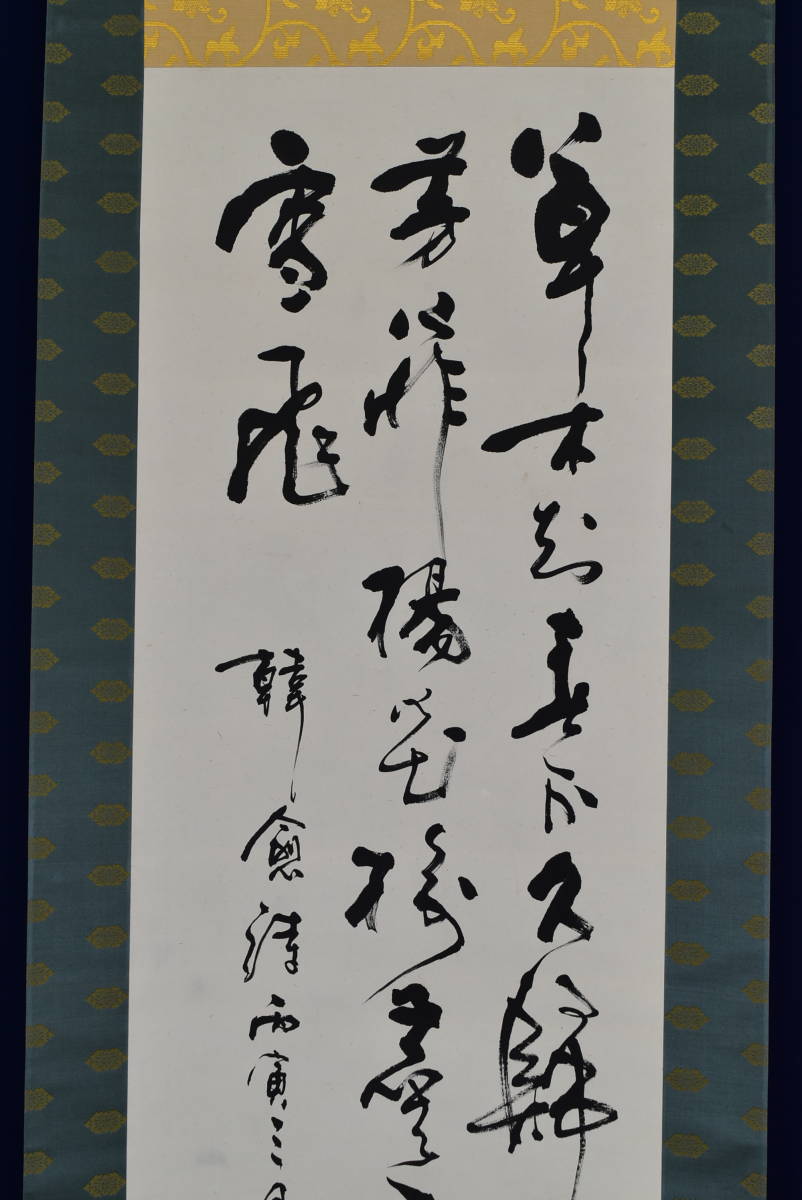 草木知春不久歸
芳菲楊花榆
雪飛 韓愈詩 丙寅三月